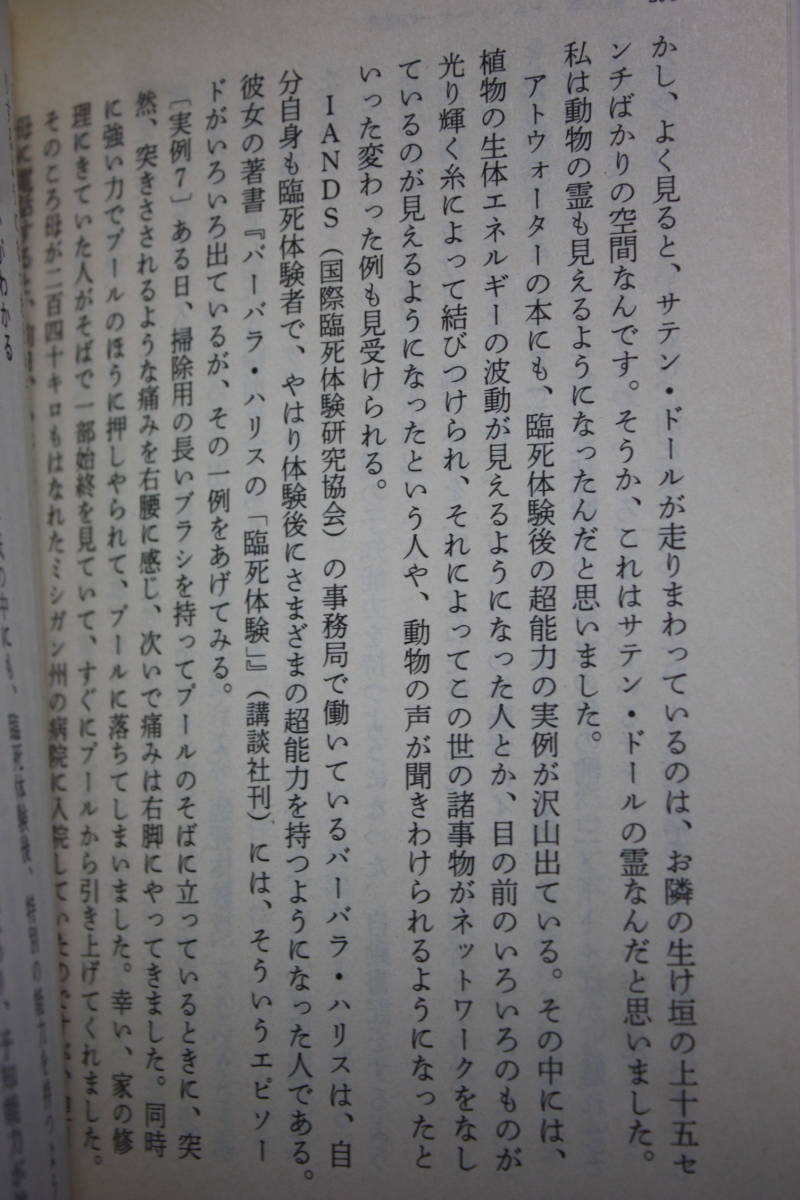 かし、よく見ると、サテン・ドールが走りまわっているのは、お隣の生け垣の上十五セ
ンチばかりの空間なんです。そうか、これはサテン・ドールの霊なんだと思いました。
私は動物の霊も見えるようになったんだと思いました。
アトウォーターの本にも、臨死体験後の超能力の実例が沢山出ている。その中には、
植物の生体エネルギーの波動が見えるようになった人とか、目の前のいろいろのものが
光り輝く糸によって結びつけられ、それによってこの世の諸事物がネットワークをなし
ているのが見えるようになったという人や、動物の声が聞きわけられるようになったと
いった変わった例も見受けられる。
IANDS（国際臨死体験研究協会）の事務局で働いているバーバラ・ハリスは、自
分自身も臨死体験者で、やはり体験後にさまざまの超能力を持つようになった人である。
彼女の著書『バーバラ・ハリスの「臨死体験」』（講談社刊）には、そういうエピソー
ドがいろいろ出ているが、その一例をあげてみる。
〔実例7〕ある日、掃除用の長いブラシを持ってプールのそばに立っているときに、突
然、突きさされるような痛みを右腰に感じ、次いで痛みは右脚にやってきました。同時
に強い力でプールのほうに押しやられて、プールに落ちてしまいました。幸い、家の修
理にきていた人がそばで一部始終を見ていて、すぐにプールから引き上げてくれました。
そのころ母が二百四十キロもはなれたミシガン州の病院に入院していたのですが、
母に電話すると、
がわかる